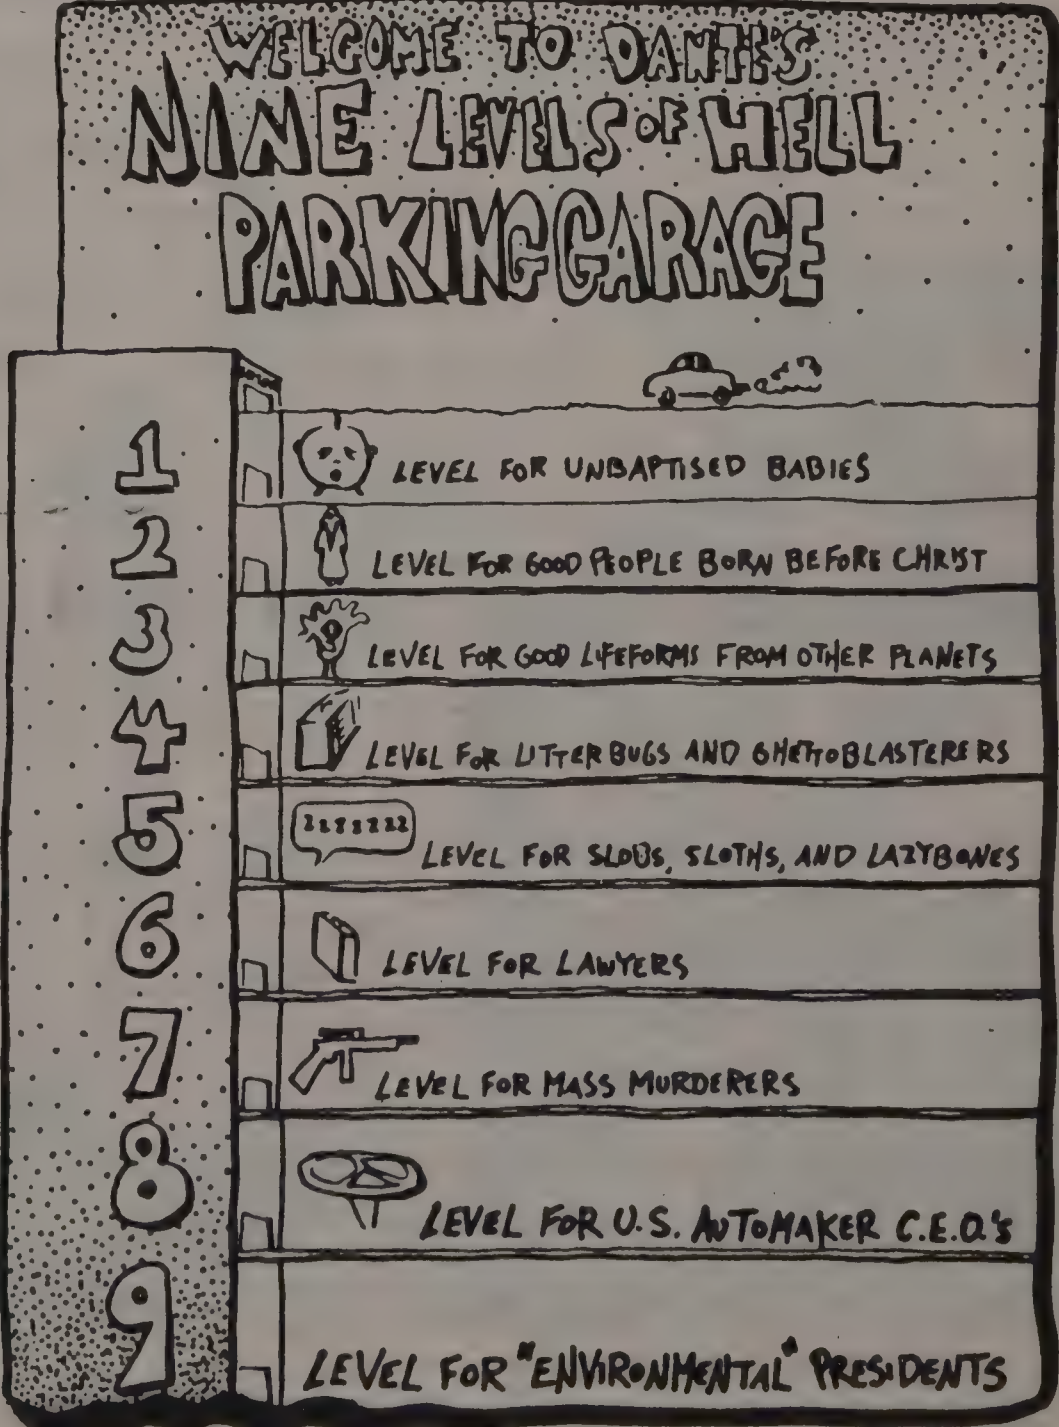 WELCOME TO DANTE'S
NINE LEVELS OF HELL
PARKING GARAGE
1
LEVEL FOR UNBAPTISED BABIES
2
LEVEL FOR GOOD PEOPLE BORN BEFORE CHRIST
3
LEVEL FOR GOOD LIFEFORMS FROM OTHER PLANETS
4
LEVEL FOR LITTERBUGS AND GHETTOBLASTERERS
5
zzzzzzz
LEVEL FOR SLOBS, SLOTHS, AND LAZYBONES
6
LEVEL FOR LAWYERS
7
LEVEL FOR MASS MURDERERS
8
LEVEL FOR U.S. AUTOMAKER C.E.O.'s
9
LEVEL FOR "ENVIRONMENTAL" PRESIDENTS